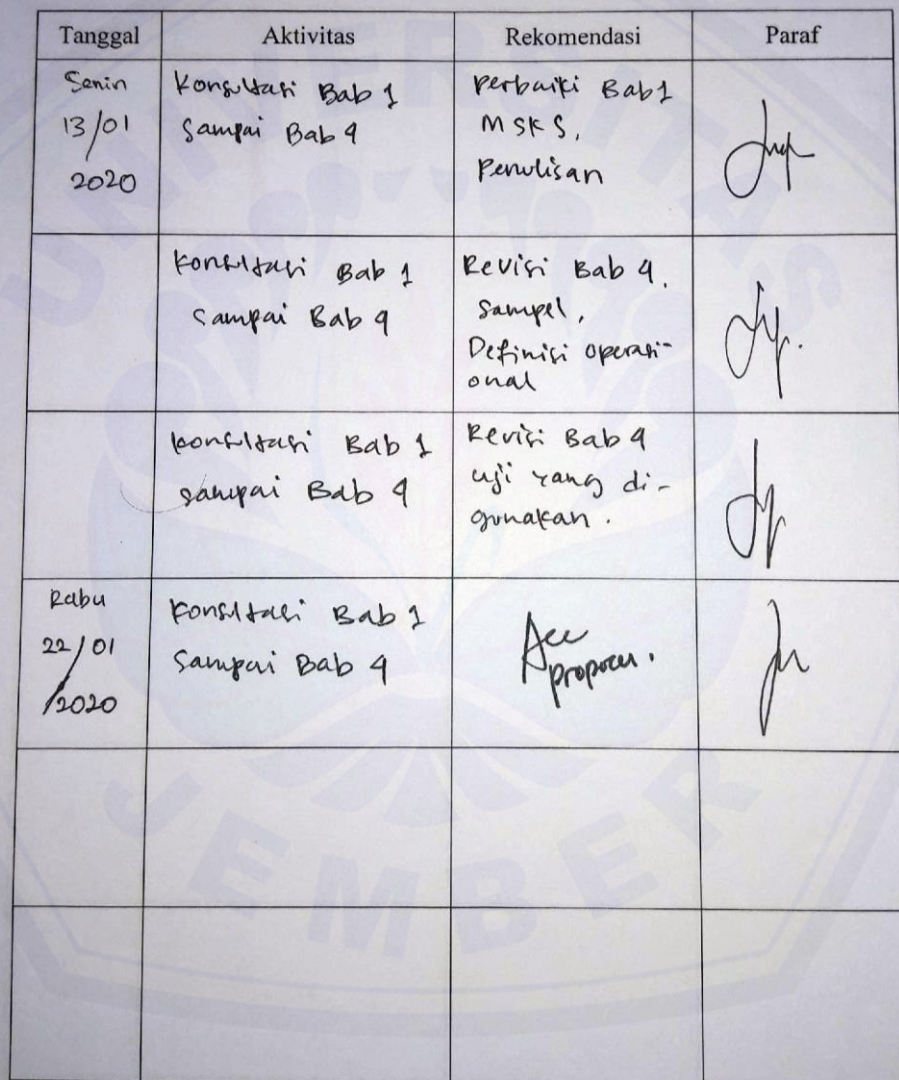 Tanggal Aktivitas Rekomendasi Paraf
Senin
13/01
2020
Konsultasi Bab 1
Sampai Bab 4
Perbaiki Bab 1
MSKS,
Penulisan
Konsultasi Bab 1
Sampai Bab 4
Revisi Bab 4.
Sampel,
Definisi operasi-
onal
Konsultasi Bab 1
Sampai Bab 4
Revisi Bab 4
uji yang di-
gunakan.
Rabu
22/01
/2020
Konsultasi Bab 1
Sampai Bab 4
Acc
UNIVERSITAS
JEMBER